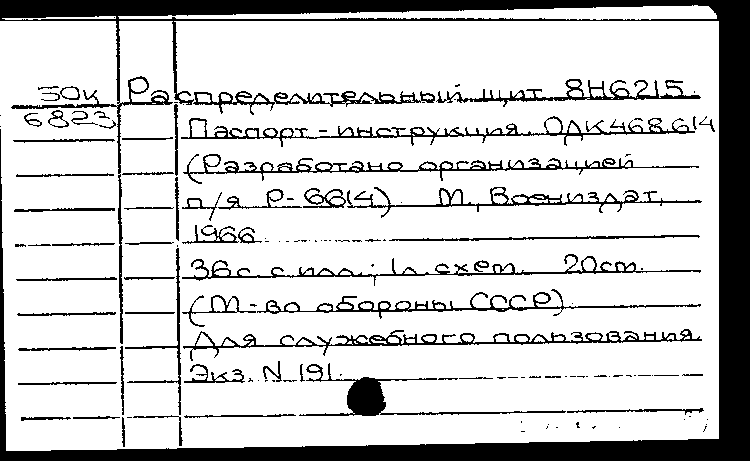 30к Распределительный щит 8Н6215.
6823 Паспорт-инструкция. ОДК.468.614
(Разработано организацией
п/я Р-6614) М., Воениздат,
1966.
36 с. с илл.; 1 л. схем. 20 см.
(М-во обороны СССР).
Для служебного пользования.
Экз. N 191.